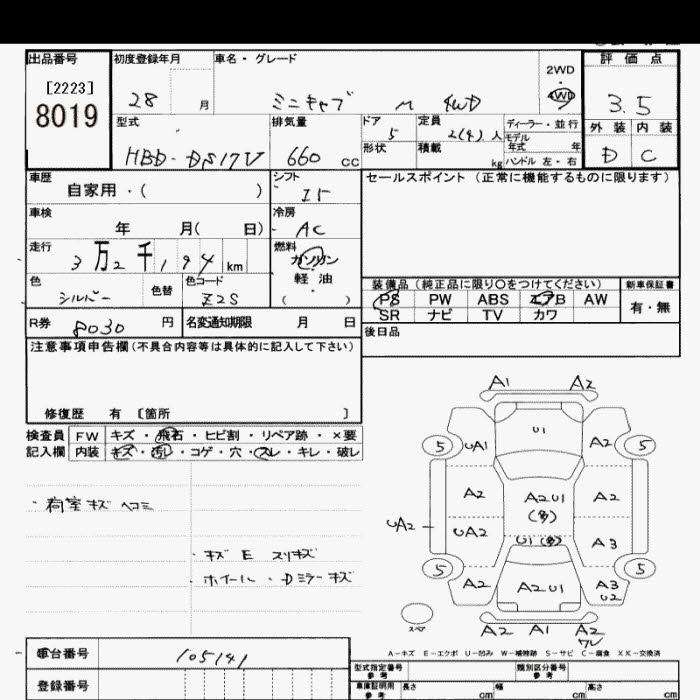 出品番号 初度登録年月 車名・グレード 評価点
[2223]
8019
28 月 ミニキャブ M 4WD
2WD
4WD
3.5
型式 排気量 ドア 定員 ディーラー・並行
HBD-DS17V 660 cc 5 2(4)人 モデル年式 年
形状 積載 kg ハンドル 左・右
外装 内装
D C
車歴 シフト セールスポイント (正常に機能するものに限ります)
自家用・( ) I5
車検 冷房
年 月( 日) AC
走行 燃料
3万2千194 km ガソリン・軽油
( )
色 色替 色コード
シルバー Z2S
装備品(純正品に限り〇をつけてください) 新車保証書
PS PW ABS エアB AW 有・無
SR ナビ TV カワ
R券 8030 円 名変通知期限 月 日
後日品
注意事項申告欄(不具合内容等は具体的に記入して下さい)
修復歴 有 〔箇所 〕
検査員 FW キズ・飛石・ヒビ割・リペア跡・×要
記入欄 内装 キズ・汚れ・コゲ・穴・スレ・キレ・破レ
・荷室キズ ヘコミ
・キズ E スリキズ
・ホイール・Dミラーキズ
A1 A2
U1
5 UA1 A2 5
A2 A2U1 A2
(多)
UA2 UA2 U1(多) A3
5 A2 A2U1 A3 5
U2
スペア
A2 A1 A2
A-キズ E-エクボ U-凹み W-補修跡 S-サビ C-腐食 XX-交換済
車台番号 105141
登録番号
型式指定番号 参考 類別区分番号 参考
車庫証明用 参考 長さ cm 幅 cm 高さ cm